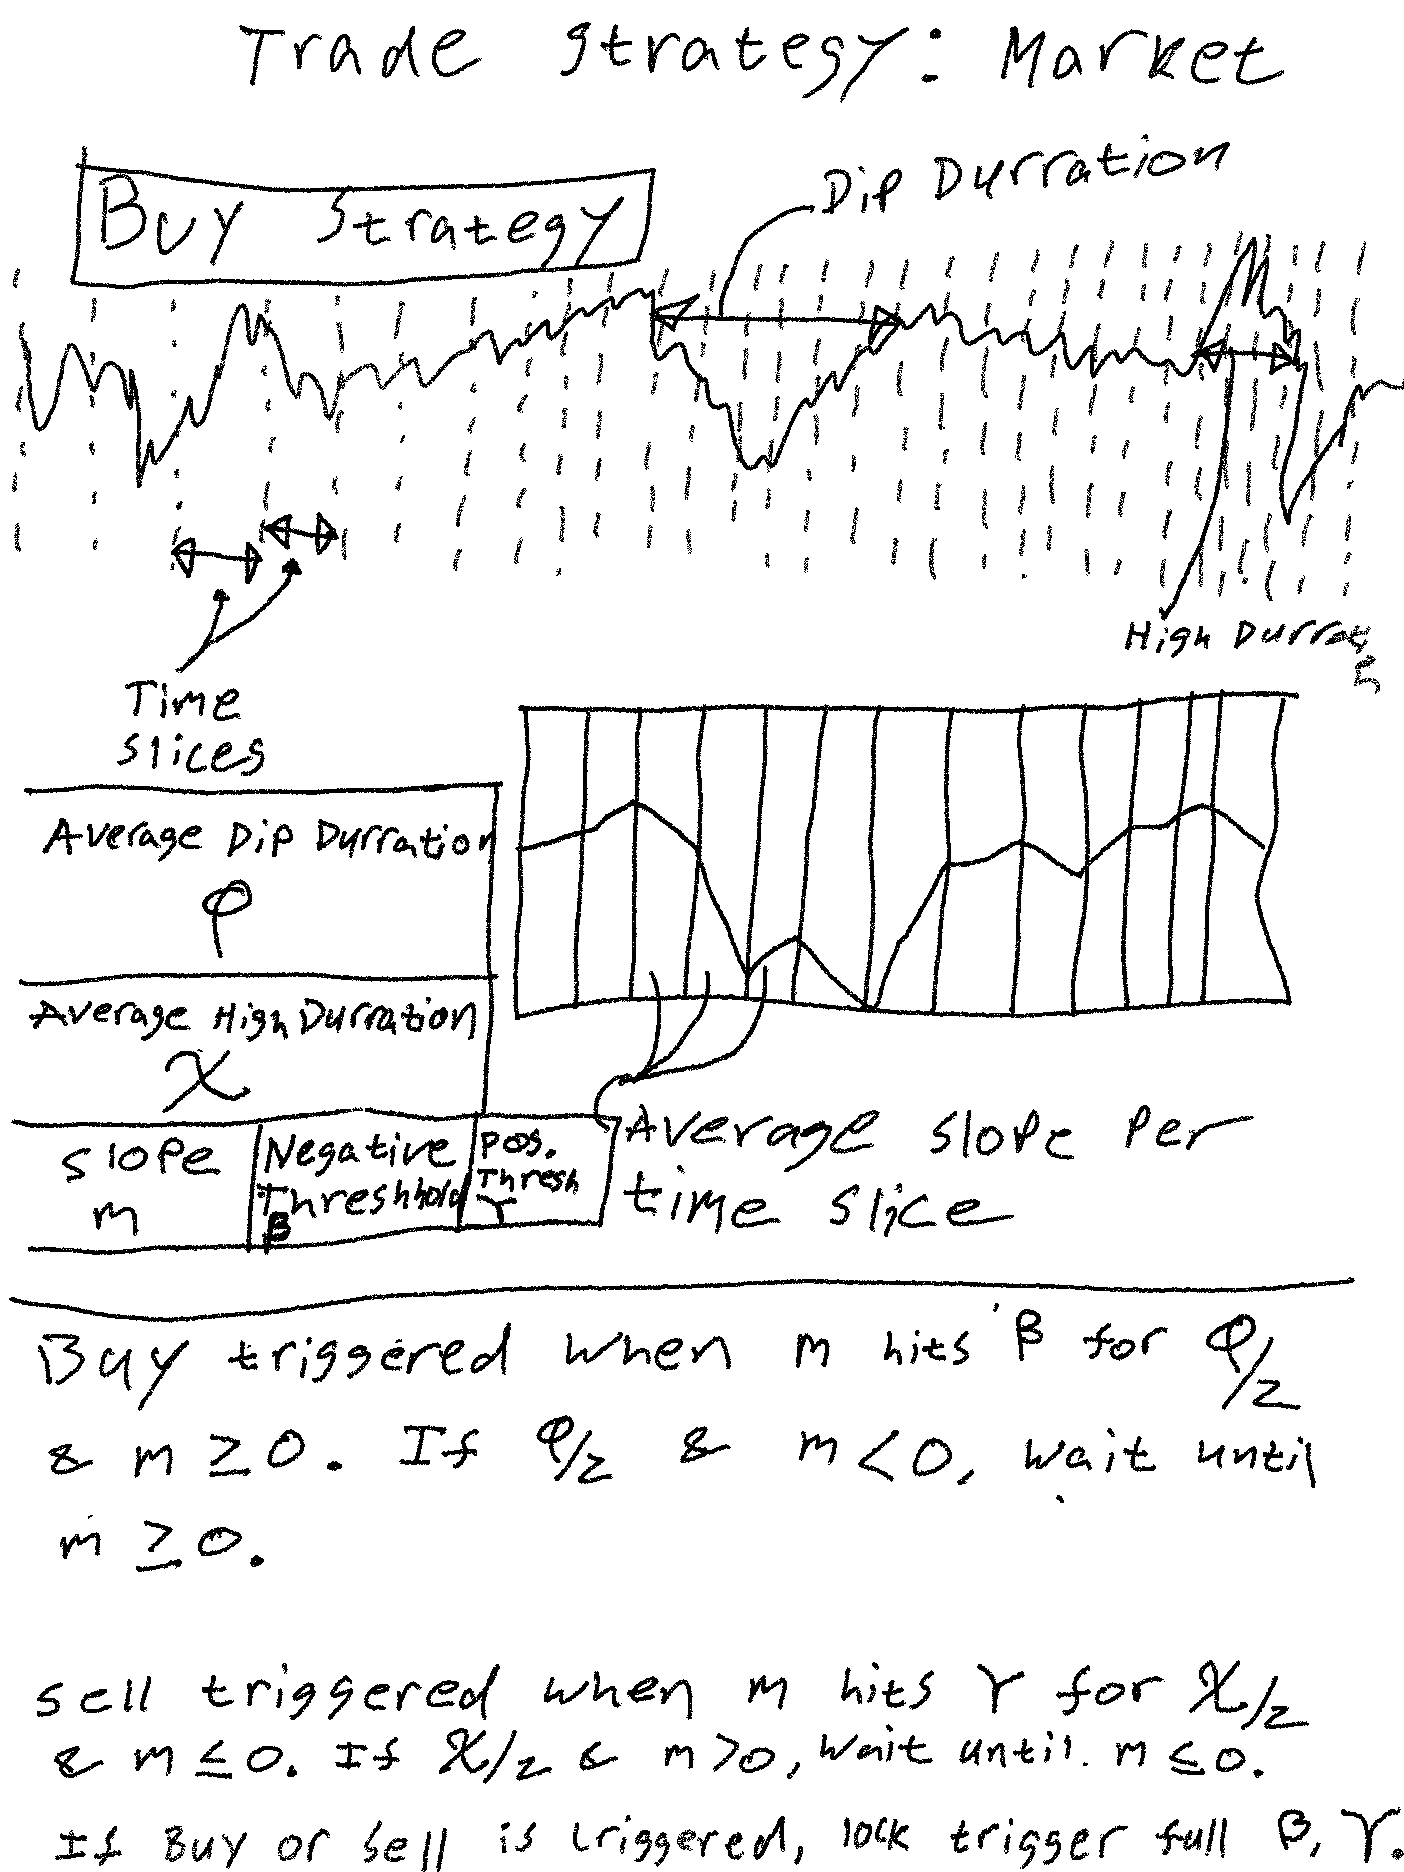 Trade Strategy: Market
Dip Durration
Buy Strategy
High Durrat
Time
slices
Average Dip Durration
φ
Average High Durration
χ
Slope
m
Negative
Threshhold
β
Pos.
Thresh
γ
Average slope per
time slice
Buy triggered when m hits β for φ/2
& m ≥ 0. If φ/2 & m < 0, wait until
m ≥ 0.
Sell triggered when m hits γ for χ/2
& m ≤ 0. If χ/2 & m > 0, wait until m ≤ 0.
If Buy or Sell is triggered, lock trigger full β, γ.